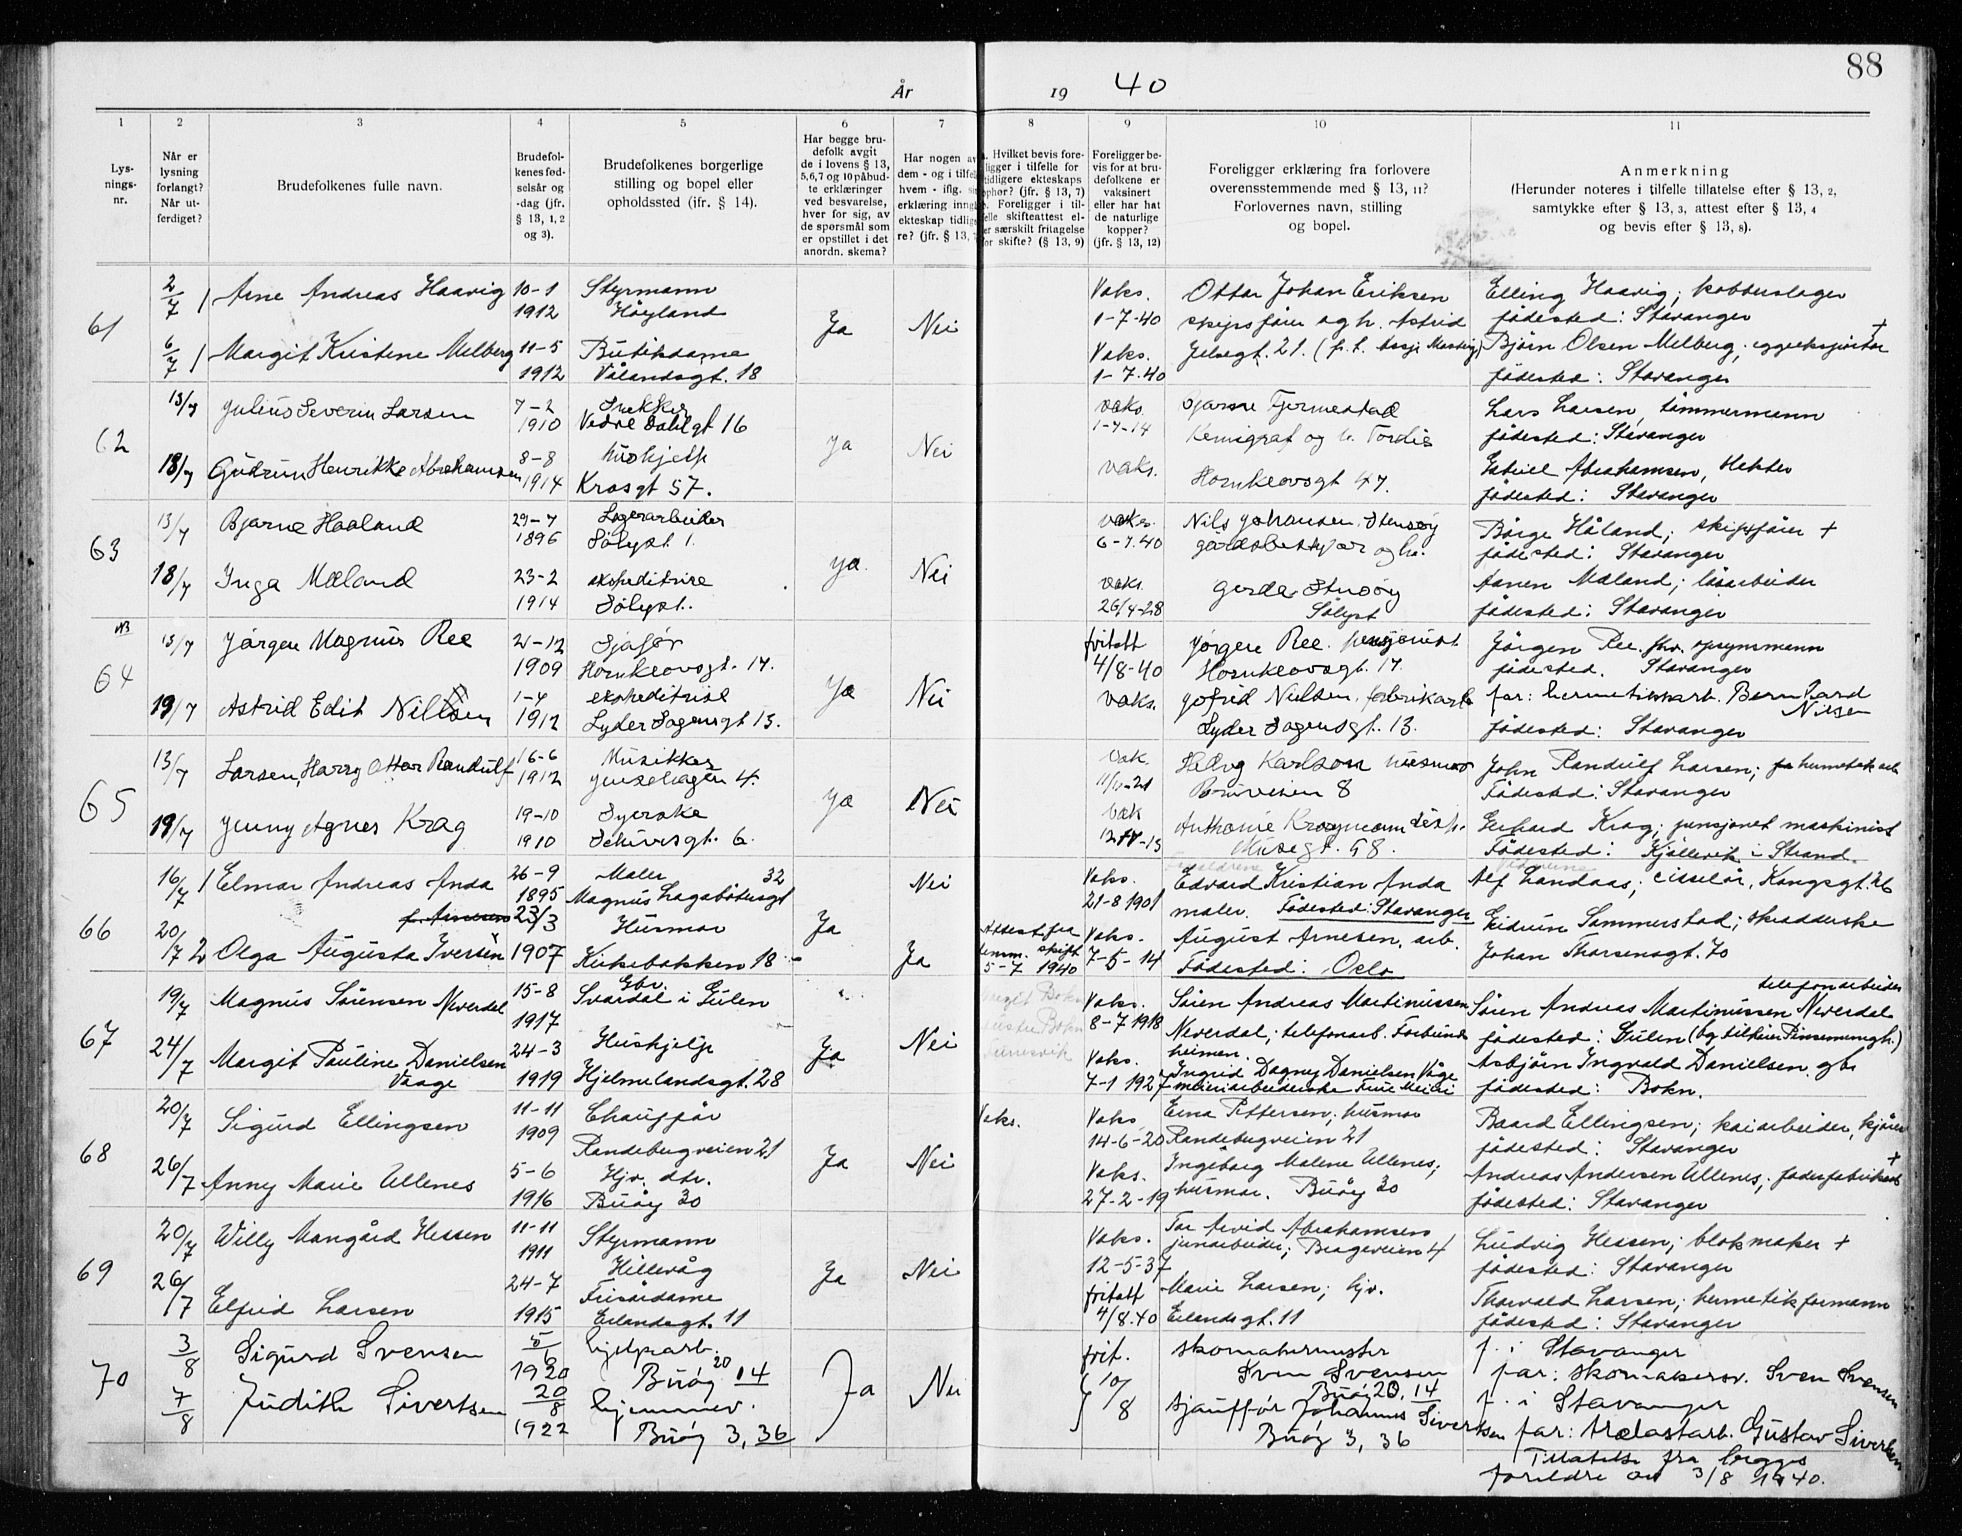 88
År 19 40
1 2 3 4 5 6 7 8 9 10 11
Lys-
nings-
nr.
Når er
lysning
forlangt?
Når ut-
ferdiget?
Brudefolkenes fulle navn.
Brudefol-
kenes fød-
selsår og
-dag (jfr.
§ 13, 1, 2
og 3).
Brudefolkenes borgerlige
stilling og bopel eller
opholdssted (ifr. § 14).
Har begge bru-
defolk avgit
de i lovens § 13,
5,6,7 og 10 påbud-
te erklæringer
ved besvarelse,
hver for sig, av
de spørsmål som
er opstillet i det
anordn. skema?
Har nogen av
dem - og i tilfelle
hvem - iflg.
erklæring inngått
ekteskap tidlige-
re? (jfr. § 13,
Hvilket bevis fore-
ligger i tilfelle for
tidligere ekteskaps
ophør? (jfr. § 13, 7)
Foreligger i til-
felle skifteattest el-
er særskilt fritagelse
for skifte? (§ 13, 9)
Foreligger be-
vis for at bru-
defolkene er
vaksinert
eller har hat
de naturlige
kopper?
(jfr. § 13, 12)
Foreligger erklæring fra forlovere
overensstemmende med § 13, 11?
Forlovernes navn, stilling
og bopel.
Anmerkning
(Herunder noteres i tilfelle tillatelse efter § 13, 2,
samtykke efter § 13, 3, attest efter § 13, 4
og bevis efter § 13, 8).
61
2/7 Arne Andreas Haavig 10-1 1912 Styrmann Høyland
6/7 Margit Kristine Melberg 11-5 1912 Butikdame Vålandsgt. 18
Ja Nei
Vaks. 1-7-40
Vaks. 1-7-40
Ottar Johan Eriksen
skipsfører og h. Astrid
Jelsegt. 21.
Elling Haavig; kobberslager
fødested: Stavanger
Bjørn Olsen Melberg; eggeeksportør +
fødested: Stavanger
62
13/7 Julius Severin Larsen 7-2 1910 Snekker Vedre Dahlgt 16
18/7 Gudrun Henrikke Abrahamsen 8-8 1914 hushjelp Krosgt 57.
Ja Nei
vaks. 1-7-14
vaks.
Bjarne Tjermestad
Kemigraf og h. Tordis
Hornkeovsgt 47.
Lars Larsen, tømmermann
fødested: Stavanger
Gabriel Abrahamsen,
fødested: Stavanger
63
13/7 Bjarne Haaland 29-7 1896 Lagerarbeider Sølyst 1.
18/7 Inga Mæland 23-2 1914 ekspeditrise Sølyst.
ja Nei
vaks. 6-7.40
vaks. 26/4-28
Nils Johansen Stensøy
gårdsbestyrer og h.
Gerda Stensøy
Sølyst
Børge Håland; skipsfører +
fødested: Stavanger
Mæland; løsarbeider
fødested: Stavanger
NB
64
13/7 Jørgen Magnus Ree 21-12 1909 Sjafør Hornkeovsgt. 17.
19/7 Astrid Edit Nilsen 1-4 1912 ekspeditrise Lyder Sagensgt 13.
Ja Nei
fritatt 4/8-40
vaks.
Jørgen Ree. pensjonist
Hornkeovsgt. 17.
Jofrid Nielsen. fabrikarb
Lyder Sagensgt. 13.
Jørgen Ree. fhv. opsynsmann
fødested. Stavanger
far: hermetikkarb. Bernhard
Nilsen
fødested: Stavanger
65
13/7 Larsen, Harry Ottar Randulf 16-6 1912 Musikker Jensehagen 4.
19/7 Jenny Agnes Krag 19-10 1910 Syerske Schivesgt. 6.
Ja Nei
Vak.
Vak
Helvg Karlson husmor
8
Anthonie Kragmann
Musegt. 68.
John Randulf Larsen; hermetikarb
Fødested: Stavanger
Gerhard Krag; pensjonet maskinist
Fødested: Kjøllevik i Strand.
66
16/7 Elmar Andreas Anda 26-9 1895 Maler Magnus Lagabøtersgt 32
f. Arnesen
20/7 Olga Augusta Iversen 23/3 1907 Husmor Kirkebakken 18
Ja Nei Ja
Attest fra
skift
5-7 1940
Vaks. 21-8 1901
Vaks. 7-5-14
Foreldrene
Edvard Kristian Anda
maler. Fødested: Stavanger
August Arnesen, arb.
Fødested: Oslo
Alf Landaas; ciselør, Kongsgt. 26
Eidunn Sammerstad; skredderske
Johan Thorsensgt. 70
67
19/7 Magnus Sørensen Neverdal 15-8 1917 Gbr. Svardal i Gulen
24/7 Margit Pauline Danielsen Vaage 24-3 1919 Hushjelp Hjelmelandsgt. 28
Ja Nei
Vaks. 8-7 1918
Vaks. 7-1 1927
Søren Andreas Martinussen
Neverdal; telefonarb. Forbunds
heimen.
Ingrid Dagny Danielsen Våge
meieriarbeiderske Tine Meieri
telefonarbeider
Søren Andreas Martinussen Neverdal
fødested: Gulen (og tilhører Pinsemenigh.)
Asbjørn Ingvald Danielsen. gbr
fødested: Bokn.
68
20/7 Sigurd Ellingsen 11-11 1909 Chauffør Randebergveien 21
26/7 Anny Marie Ullenes 5-6 1916 Hjv. dtr. Buøy 30
Ja Nei
Vaks.
Vaks. 14-6-20
Vaks. 27-2-19
Erna Pettersen; husmor
Randebergveien 21
Ingeborg Malene Ullenes;
husmor. Buøy 30
Baard Ellingsen; kaiarbeider, kjører
fødested: Stavanger
Andreas Andersen Ullenes; +
fødested: Stavanger
69
20/7 Willy Mangård Hessen 11-11 1911 Styrmann Hillevåg
26/7 Elfrid Larsen 24-7 1915 Frisørdame Eilandsgt. 11
Ja Nei
Vaks. 12-5-37
fritatt 4/8.40
Tor Arvid Abrahamsen
jernarbeider; Brageveien 4
Marie Larsen; hjv.
Eilandsgt. 11
Ludvig Hessen; blokmaker +
fødested: Stavanger
Thorvald Larsen; hermetikformann
fødested: Stavanger
70
3/8 Sigurd Svensen 5/8 1920 hjelparb. Buøy 20 14
7/8 Judith Sivertsen 20/8 1922 hjemmev. Buøy 3, 36
Ja Nei
frit. 10/8
skomakermester
Sven Svensen
Buøy 20, 14
sjauffør Johannes Sivertsen
Buøy 3, 36
f. i Stavanger
far: skomakersv. Sven Svensen
f. i Stavanger
far: trelastarb. Gustav Sivertsen
Tillatelse fra begges
foreldre av 3/8 1940.